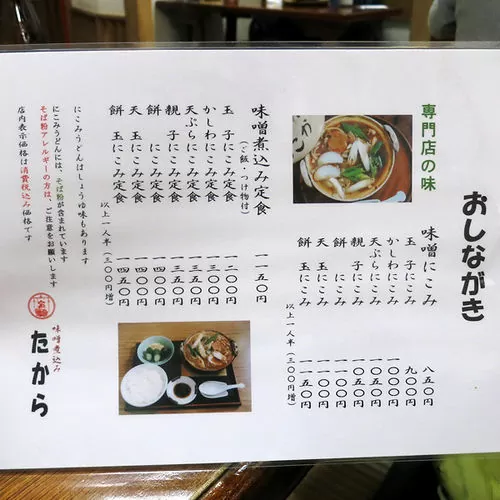 おしながき
専門店の味
味噌にこみ 八五〇円
玉子にこみ 九〇〇円
かしわにこみ 一〇〇〇円
天ぷらにこみ 一〇五〇円
親子にこみ 一〇五〇円
餅にこみ 一〇〇〇円
天玉にこみ 一一五〇円
餅玉にこみ 一一五〇円
以上一人半(三〇〇円増)
味噌煮込み定食 一一五〇円
(ご飯・つけ物付)
玉子にこみ定食 一二〇〇円
かしわにこみ定食 一三〇〇円
天ぷらにこみ定食 一三五〇円
親子にこみ定食 一三五〇円
餅にこみ定食 一三〇〇円
天玉にこみ定食 一四五〇円
餅玉にこみ定食 一四五〇円
以上一人半(三〇〇円増)
にこみうどんはしょうゆ味もあります
にこみうどんには、そば粉が含まれています
そば粉アレルギーの方は、ご注意をお願いします
店内表示価格は消費税込み価格です
味噌煮込み
たから